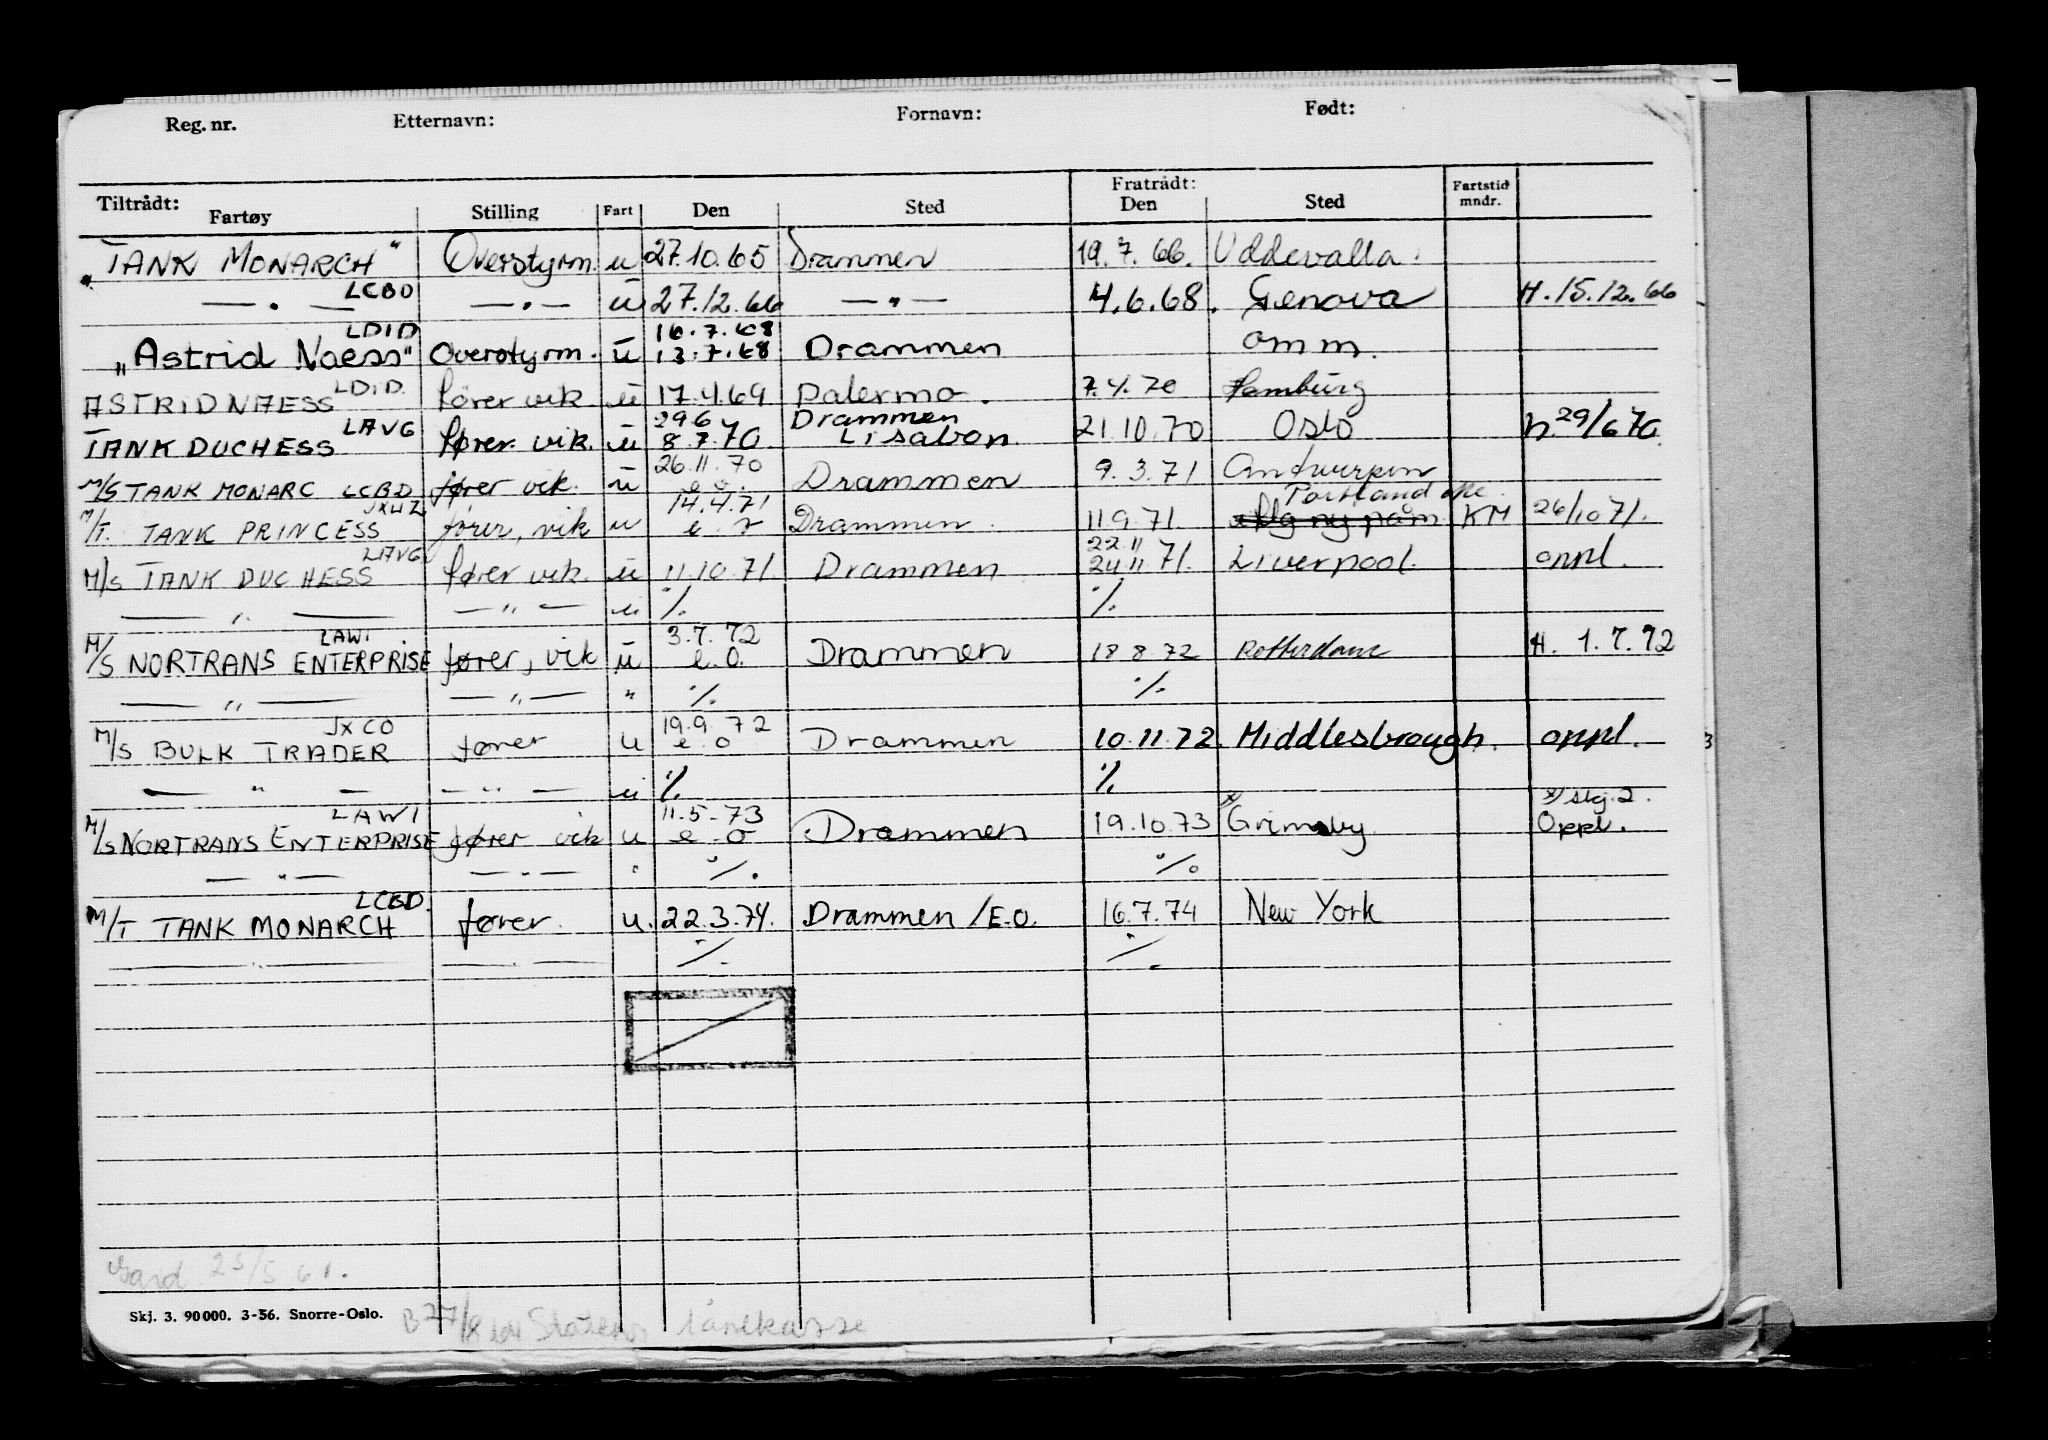 Reg. nr. Etternavn: Fornavn: Født:
Tiltrådt: Fratrådt: Fartstid
Fartøy Stilling Fart Den Sted Den Sted mndr.
"TANK MONARCH" Overstyrm. u 27.10.65 Drammen 19.7.66. Uddevalla.
LCBD
— " — — " — u 27.12.66 — " — 4.6.68. Genova H. 15.12.66
LDID 16.7.68
"Astrid Naess" Overstyrm. u 13.7.68 Drammen omm.
LDID
ASTRID NAESS fører vik u 17.4.69 Palermo. 7.4.70 Hamburg
LAVG 29 6 Drammen
TANK DUCHESS fører vik. u 8.7.70. Lisabon 21.10.70 Oslo h. 29/6 70.
26.11.70
M/S TANK MONARC LCBD fører vik. u e o. Drammen 9.3.71 Antwerpen
14.4.71 Portland
M/T. TANK PRINCESS fører, vik u Drammen 11.9.71. KM 26/10 71.
LAVG 22 11
M/S TANK DUCHESS fører vik. u 11.10.71. Drammen 24.11.71. Liverpool. oppl.
— " — — " — u ./. ./.
LAWI 3.7.72
M/S NORTRANS ENTERPRISE fører, vik u e.o. Drammen 18.8.72 Rotterdam H. 1.7.72
— " — — " — " ./. ./.
JXCO 19.9.72
M/S BULK TRADER fører u e o Drammen 10.11.72. Middlesbrough. oppl.
— " — — " — u ./. ./.
LAWI 11.5-73 x) x) skj. 2.
M/S NORTRANS ENTERPRISE fører vik u e o Drammen 19.10.73 Grimsby Oppl.
— " — — " — " ./. ./.
LCBD.
M/T TANK MONARCH fører. u. 22.3.74. Drammen /E.O. 16.7.74 New York
— " — — " — ./. ./.
23/5 61.
Skj. 3. 90000. 3-56. Snorre-Oslo.
B 27/8 Statens lånekasse